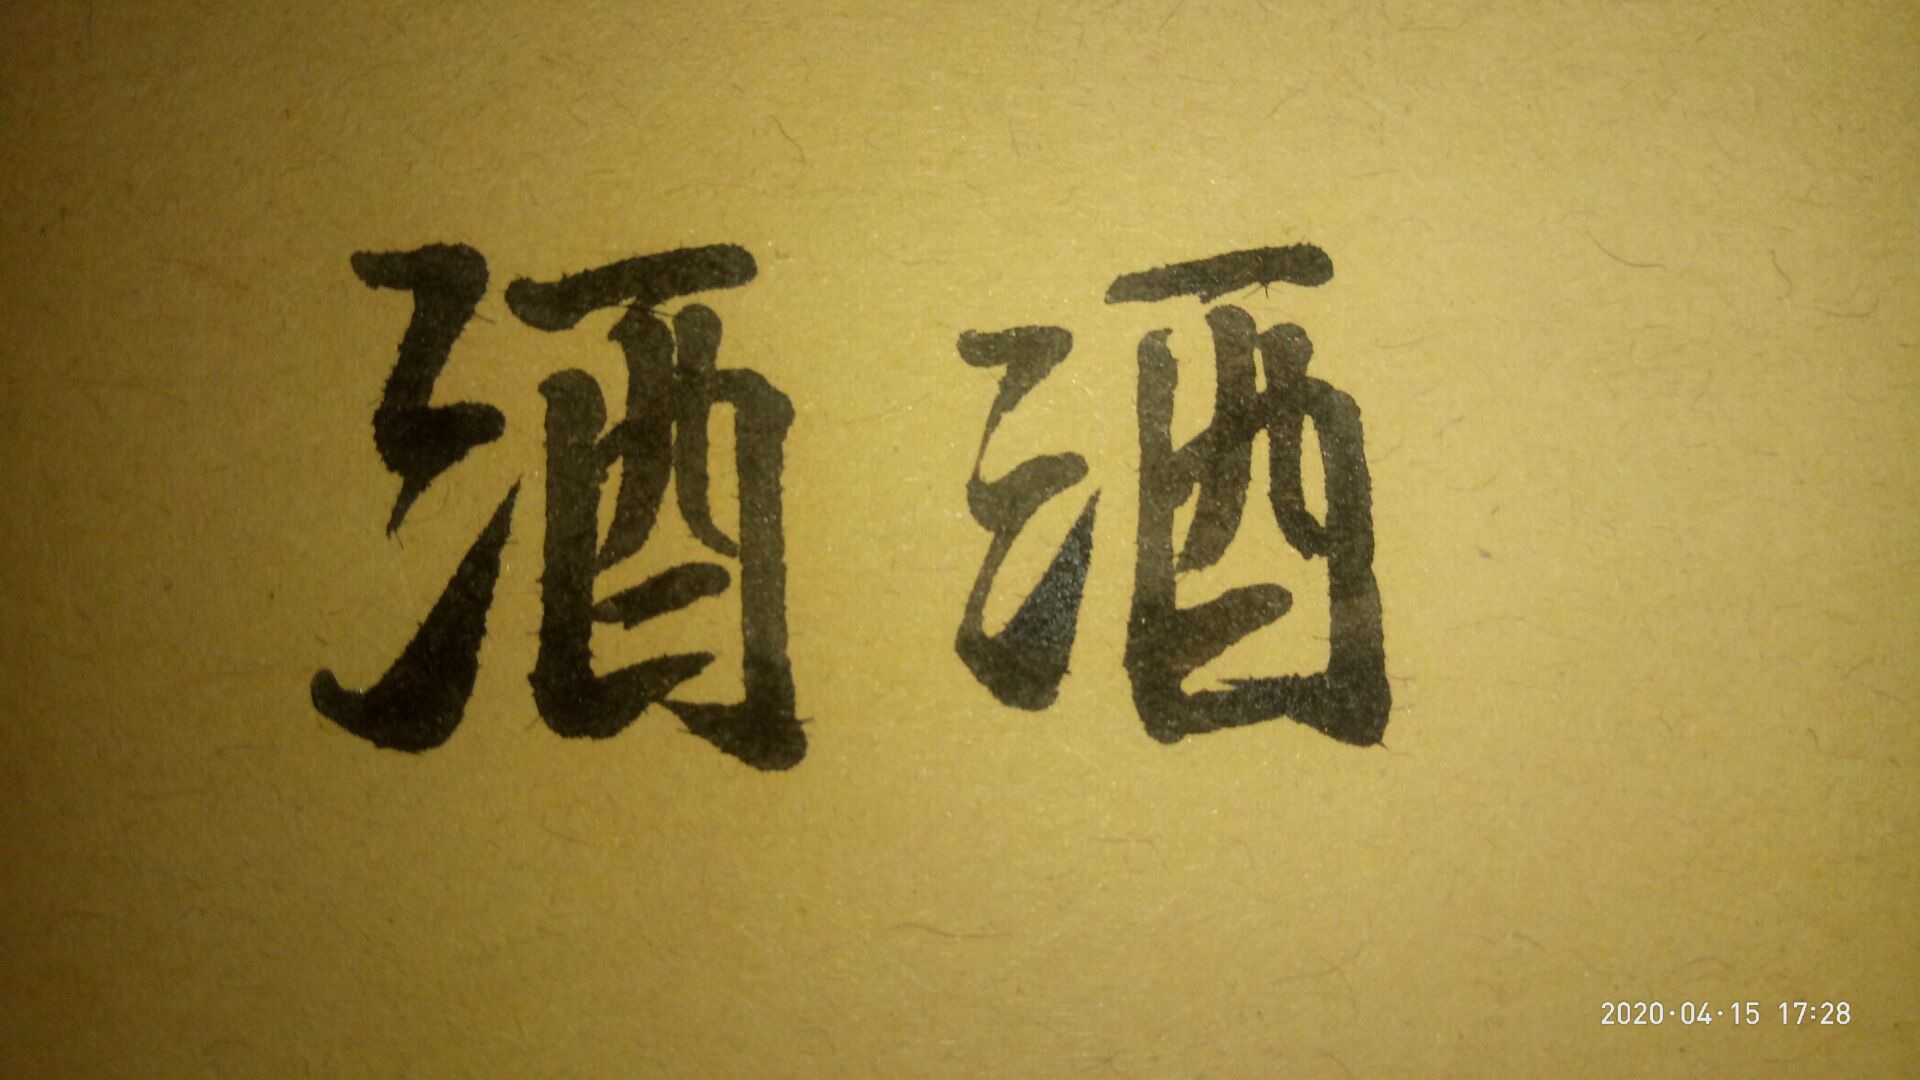 酒酒
2020·04·15 17:28